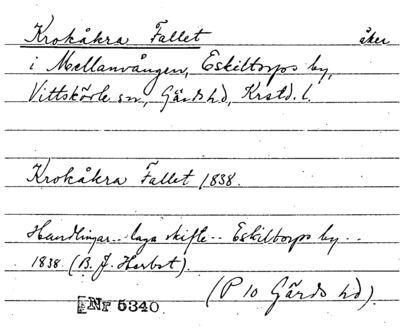 Krokåkra Fallet åker
i Mellanvången, Eskiltorps by,
Vittskövle sn, Gärds hd, Krstd. l.
Krokåkra Fallet 1838.
Handlingar .. laga skifte .. Eskiltorps by ..
1838. (B. J. Herbst).
(P 10 Gärds hd).
Nr 5340